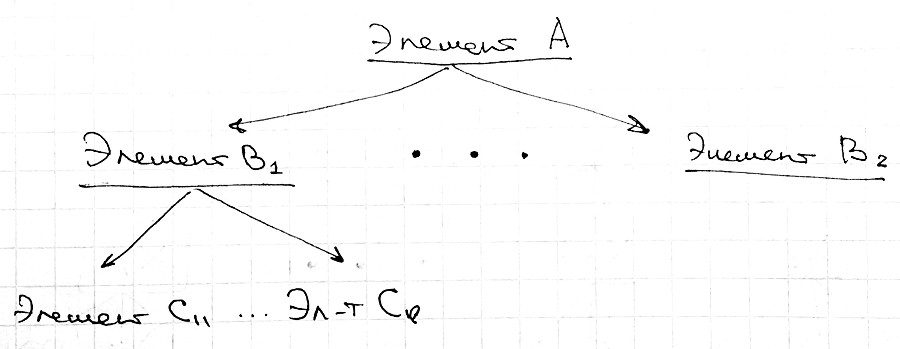 Элемент А
Элемент B₁ . . . Элемент B₂
Элемент C₁₁ ... Эл-т